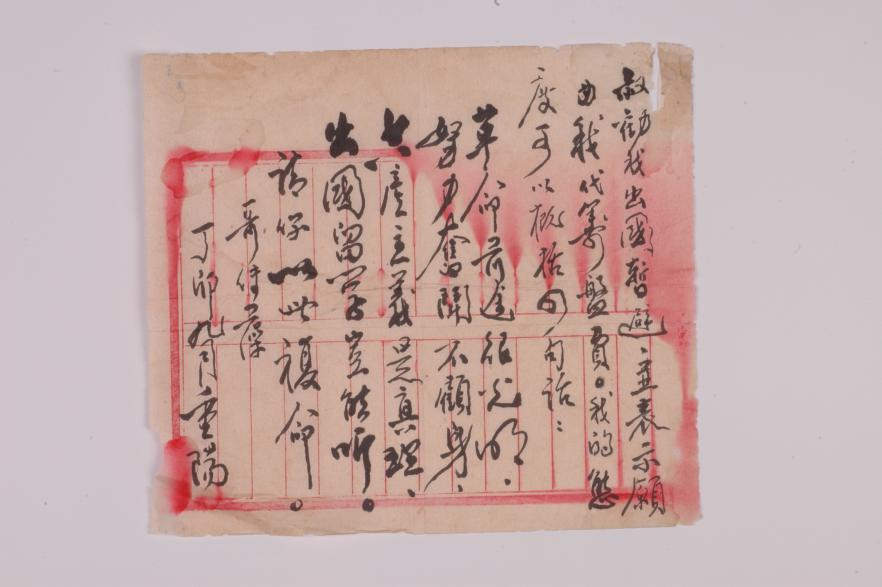 叔勸我出國暫避，並表示願
由我代籌盤費。我的態
度可以概括四句話：
革命前途很光明，
努力奮鬭不顧身，
共產主義是真理，
出國留學豈能听。
請你以此複命。
哥仕
丁卯九月重陽